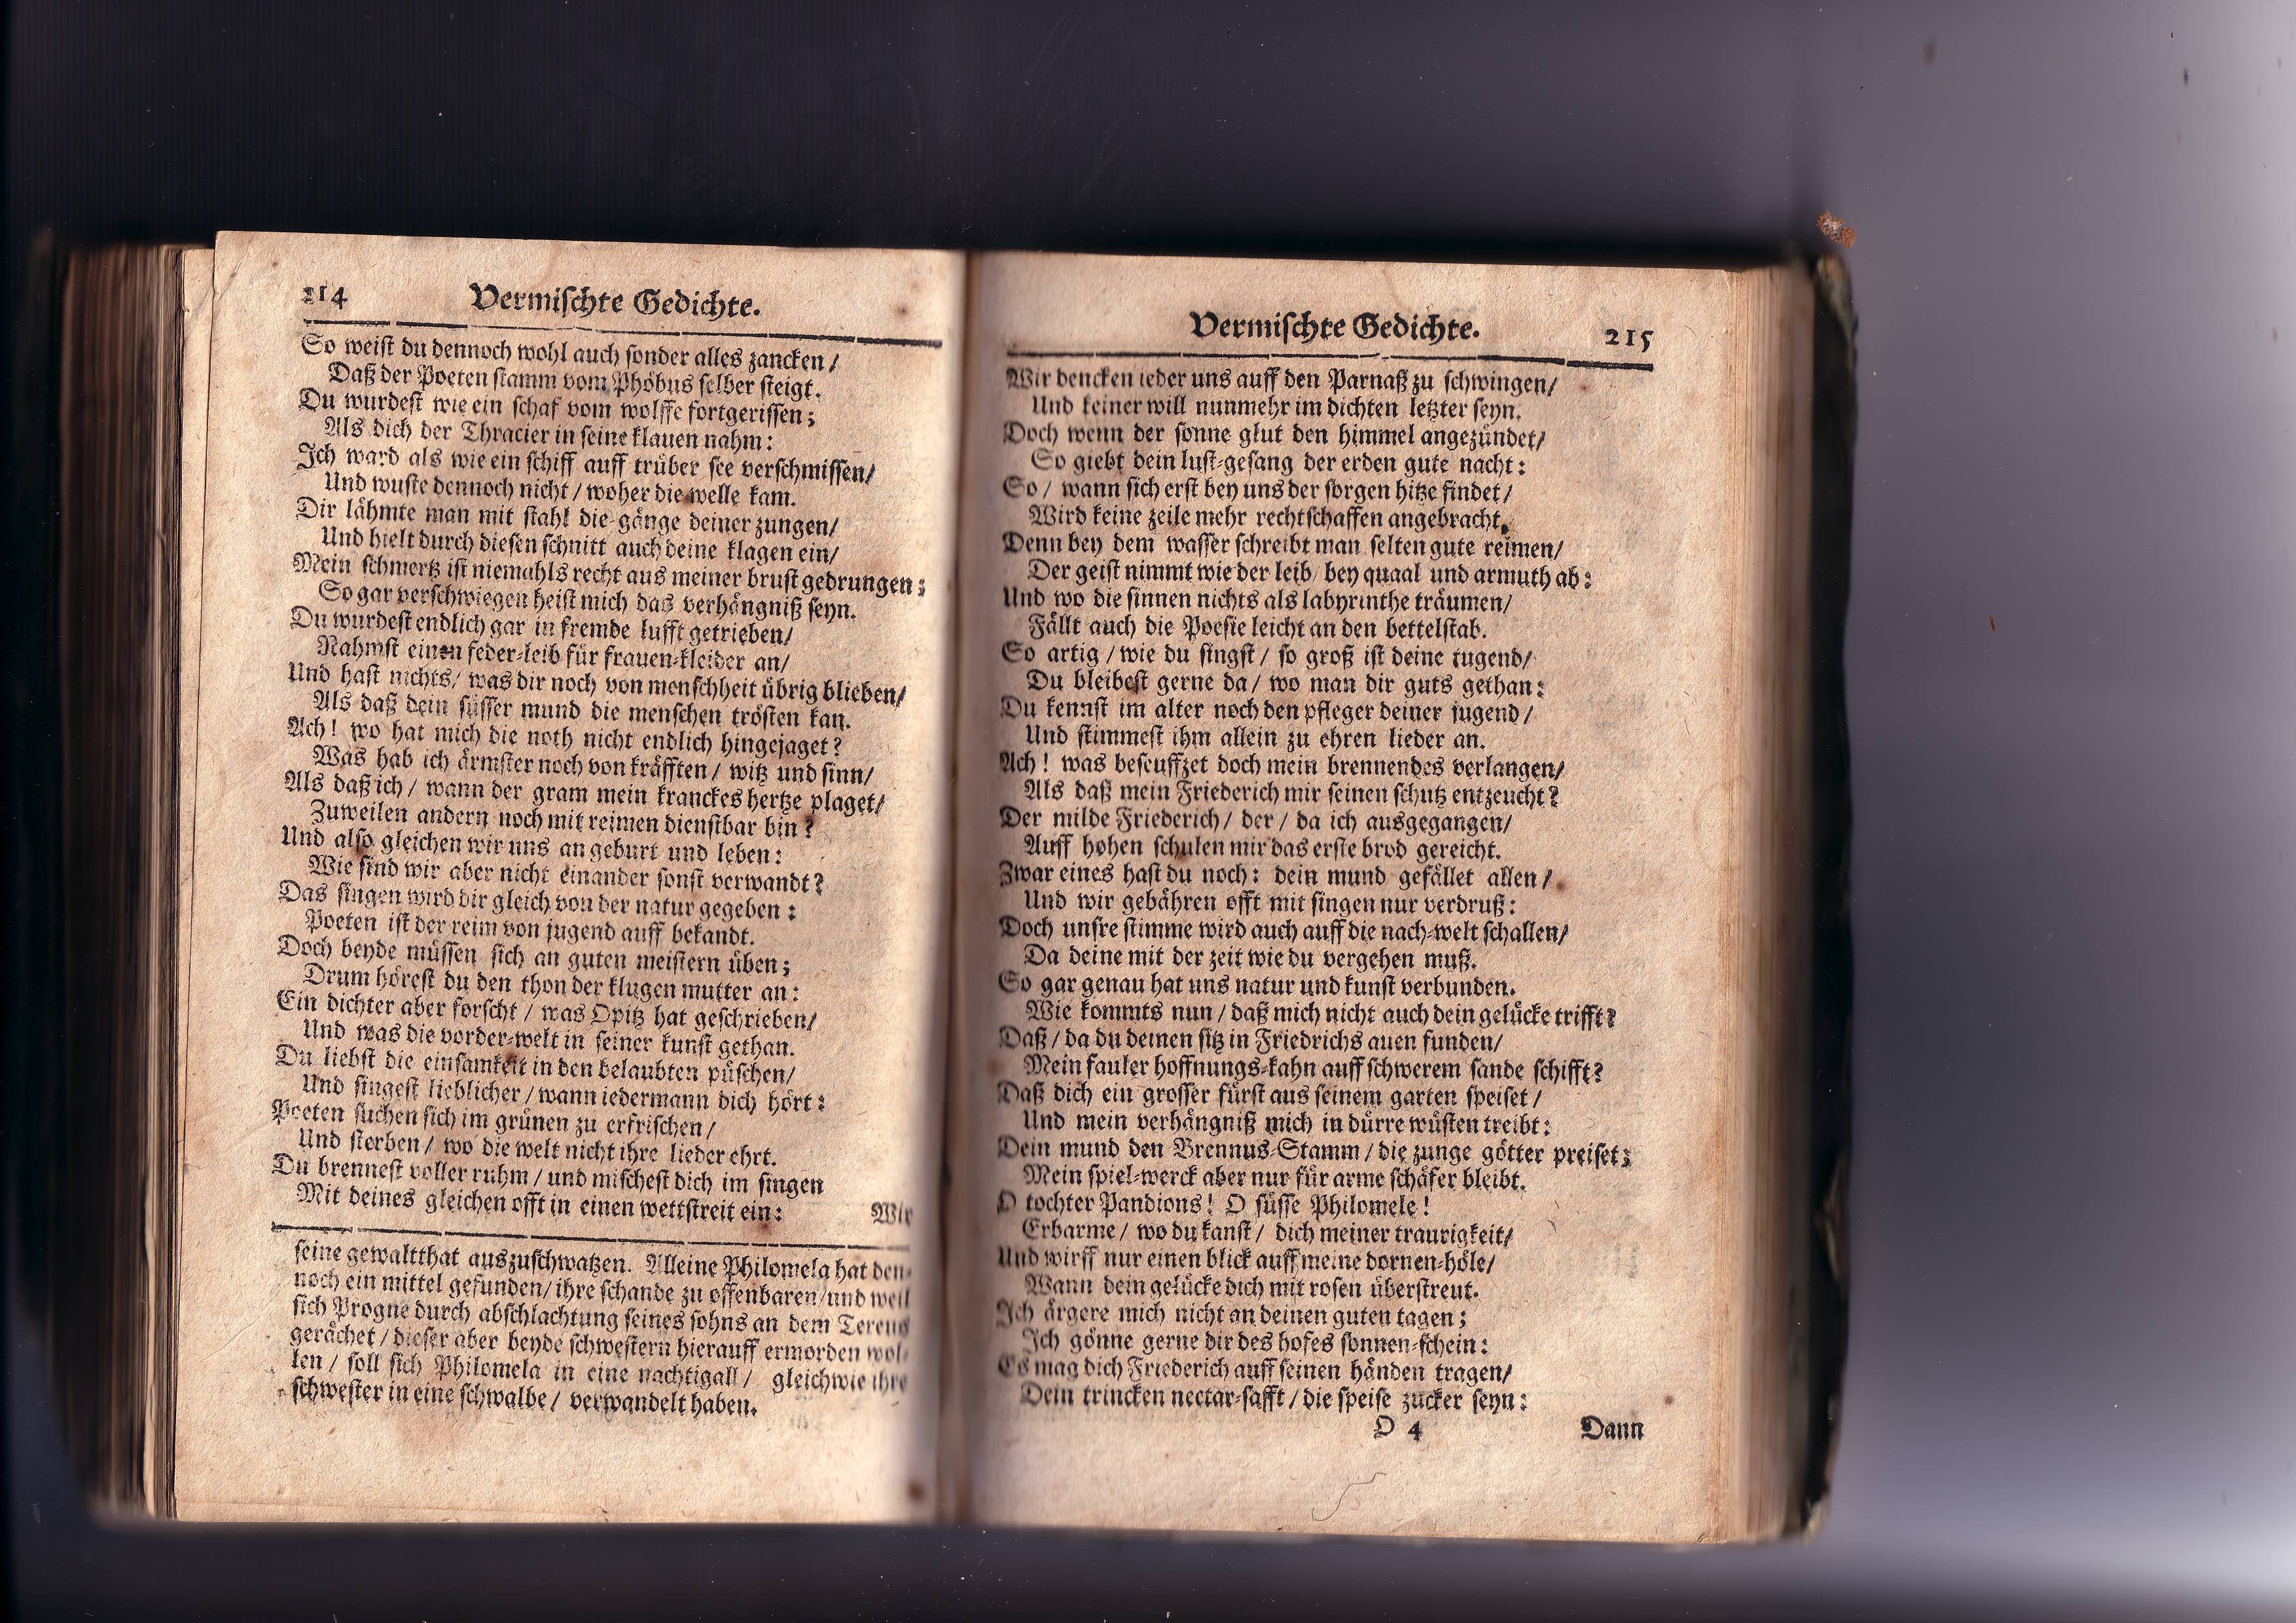 214 Vermischte Gedichte.
So weist du dennoch wohl auch sonder alles zancken/
Daß der Poeten stamm vom Phöbus selber steigt.
Du wurdest wie ein schaf vom wolffe fortgerissen;
Als dich der Thracier in seine klauen nahm:
Ich ward als wie ein schiff auff trüber see verschmissen/
Und wuste dennoch nicht/ woher die welle kam.
Dir lähmte man mit stahl die gänge deiner zungen/
Und hielt durch diesen schnitt auch deine klagen ein/
Mein schmertz ist niemahls recht aus meiner brust gedrungen;
So gar verschwiegen heist mich das verhängniß seyn.
Du wurdest endlich gar in fremde lufft getrieben/
Nahmst einen feder-leib für frauen-kleider an/
Und hast nichts/ was dir noch von menschheit übrig blieben/
Als daß dein süsser mund die menschen trösten kan.
Ach! wo hat mich die noth nicht endlich hingejaget?
Was hab ich ärmster noch von kräfften/ witz und sinn/
Als daß ich/ wann der gram mein kranckes hertze plaget/
Zuweilen andern noch mit reimen dienstbar bin?
Und also gleichen wir uns an geburt und leben:
Wie sind wir aber nicht einander sonst verwandt?
Das singen wird dir gleich von der natur gegeben:
Poeten ist der reim von jugend auff bekandt.
Doch beyde müssen sich an guten meistern üben;
Drum hörest du den thon der klugen mutter an:
Ein dichter aber forscht/ was Opitz hat geschrieben/
Und was die vorder-welt in seiner kunst gethan.
Du liebst die einsamkeit in den belaubten püschen/
Und singest lieblicher/ wann iedermann dich hört:
Poeten suchen sich im grünen zu erfrischen/
Und sterben/ wo die welt nicht ihre lieder ehrt.
Du brennest voller ruhm/ und mischest dich im singen
Mit deines gleichen offt in einen wettstreit ein:
Wir
seine gewaltthat auszuschwatzen. Alleine Philomela hat den-
noch ein mittel gefunden/ ihre schande zu offenbaren/ und weil
sich Progne durch abschlachtung seines sohns an dem Tereus
gerächet/ dieser aber beyde schwestern hierauff ermorden wol-
len/ soll sich Philomela in eine nachtigall/ gleichwie ihre
schwester in eine schwalbe/ verwandelt haben.
Vermischte Gedichte. 215
Wir dencken ieder uns auff den Parnaß zu schwingen/
Und keiner will nunmehr im dichten letzter seyn.
Doch wenn der sonne glut den himmel angezündet/
So giebt dein lust-gesang der erden gute nacht:
So/ wann sich erst bey uns der sorgen hitze findet/
Wird keine zeile mehr rechtschaffen angebracht.
Denn bey dem wasser schreibt man selten gute reimen/
Der geist nimmt wie der leib/ bey quaal und armuth ab:
Und wo die sinnen nichts als labyrinthe träumen/
Fällt auch die Poesie leicht an den bettelstab.
So artig/ wie du singst/ so groß ist deine tugend/
Du bleibest gerne da/ wo man dir guts gethan:
Du kennst im alter noch den pfleger deiner jugend/
Und stimmest ihm allein zu ehren lieder an.
Ach! was beseuffzet doch mein brennendes verlangen/
Als daß mein Friederich mir seinen schutz entzeucht?
Der milde Friederich/ der/ da ich ausgegangen/
Auff hohen schulen mir das erste brod gereicht.
Zwar eines hast du noch: dein mund gefället allen/
Und wir gebähren offt mit singen nur verdruß:
Doch unsre stimme wird auch auff die nach-welt schallen/
Da deine mit der zeit wie du vergehen muß.
So gar genau hat uns natur und kunst verbunden.
Wie kommts nun/ daß mich nicht auch dein gelücke trifft?
Daß/ da du deinen sitz in Friedrichs auen funden/
Mein fauler hoffnungs-kahn auff schwerem sande schifft?
Daß dich ein grosser fürst aus seinem garten speiset/
Und mein verhängniß mich in dürre wüsten treibt:
Dein mund den Brennus-Stamm/ die zunge götter preiset;
Mein spiel-werck aber nur für arme schäfer bleibt.
O tochter Pandions! O süsse Philomele!
Erbarme/ wo du kanst/ dich meiner traurigkeit/
Und wirff nur einen blick auff meine dornen-höle/
Wann dein gelücke dich mit rosen überstreut.
Ich ärgere mich nicht an deinen guten tagen;
Ich gönne gerne dir des hofes sonnen-schein:
Es mag dich Friederich auff seinen händen tragen/
Dein trincken nectar-safft/ die speise zucker seyn:
O 4 Dann